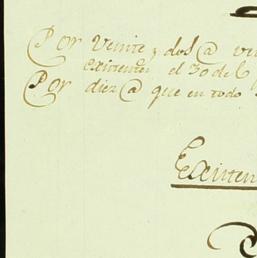 Por veinte y dos @ ve
existentes el 30 de
Por diez @ que en todo
Existen